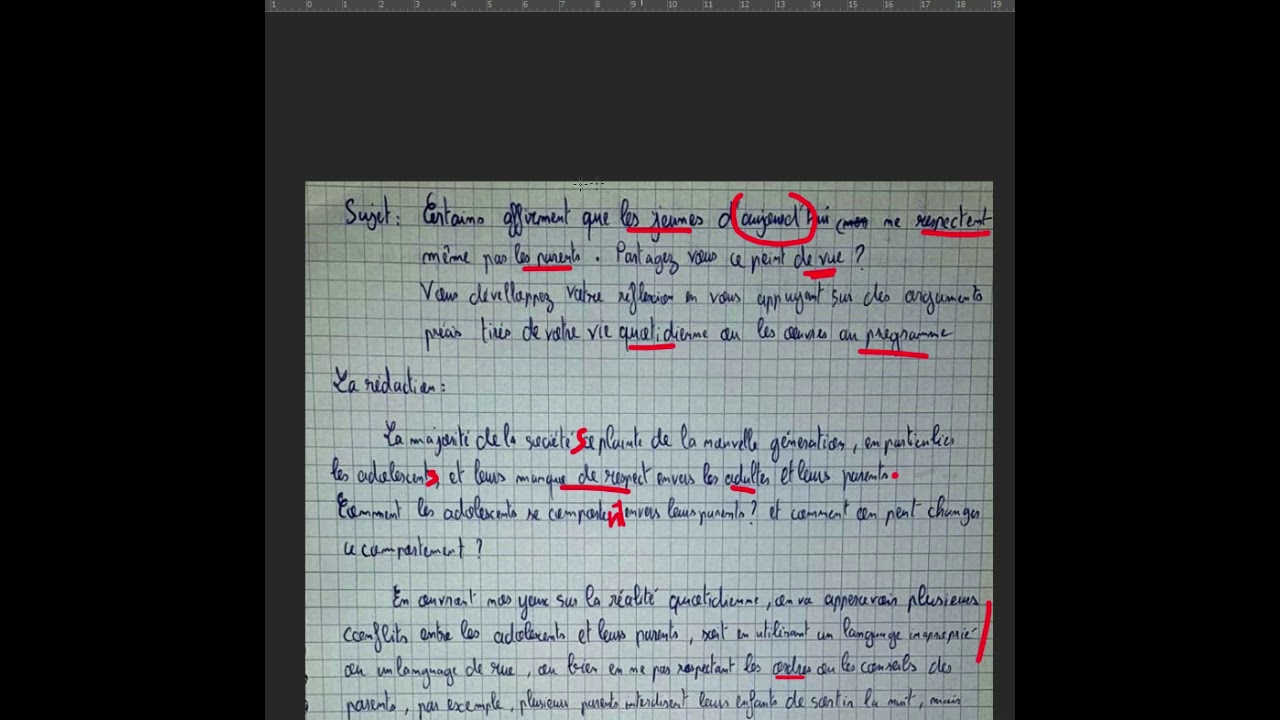 1 0 1 2 3 4 5 6 7 8 9 10 11 12 13 14 15 16 17 18 19
Sujet : Certains affirment que les jeunes d'aujourd'hui ne respectent
même pas les parents . Partagez vous ce point de vue ?
Vous dévellappez votre réflexion en vous appuyant sur des arguments
précis tirés de votre vie quotidienne ou les œuvres au programme
La rédaction :
La majorité de la société se plainte de la nouvelle génération, en particulier
les adolescents, et leurs manque de respect envers les adultes et leurs parents.
Comment les adolescents se comportent envers leurs parents ? et comment on peut changer
ce comportement ?
En ouvrant nos yeux sur la réalité quotidienne, on va appercevoir plusieurs
conflits entre les adolescents et leurs parents, soit en utilisant un language inaproprié
ou un language de rue, ou bien en ne pas respectant les ordres ou les conseils des
parents, par exemple, plusieurs parents interdisent leurs enfants de sortir la nuit, mais